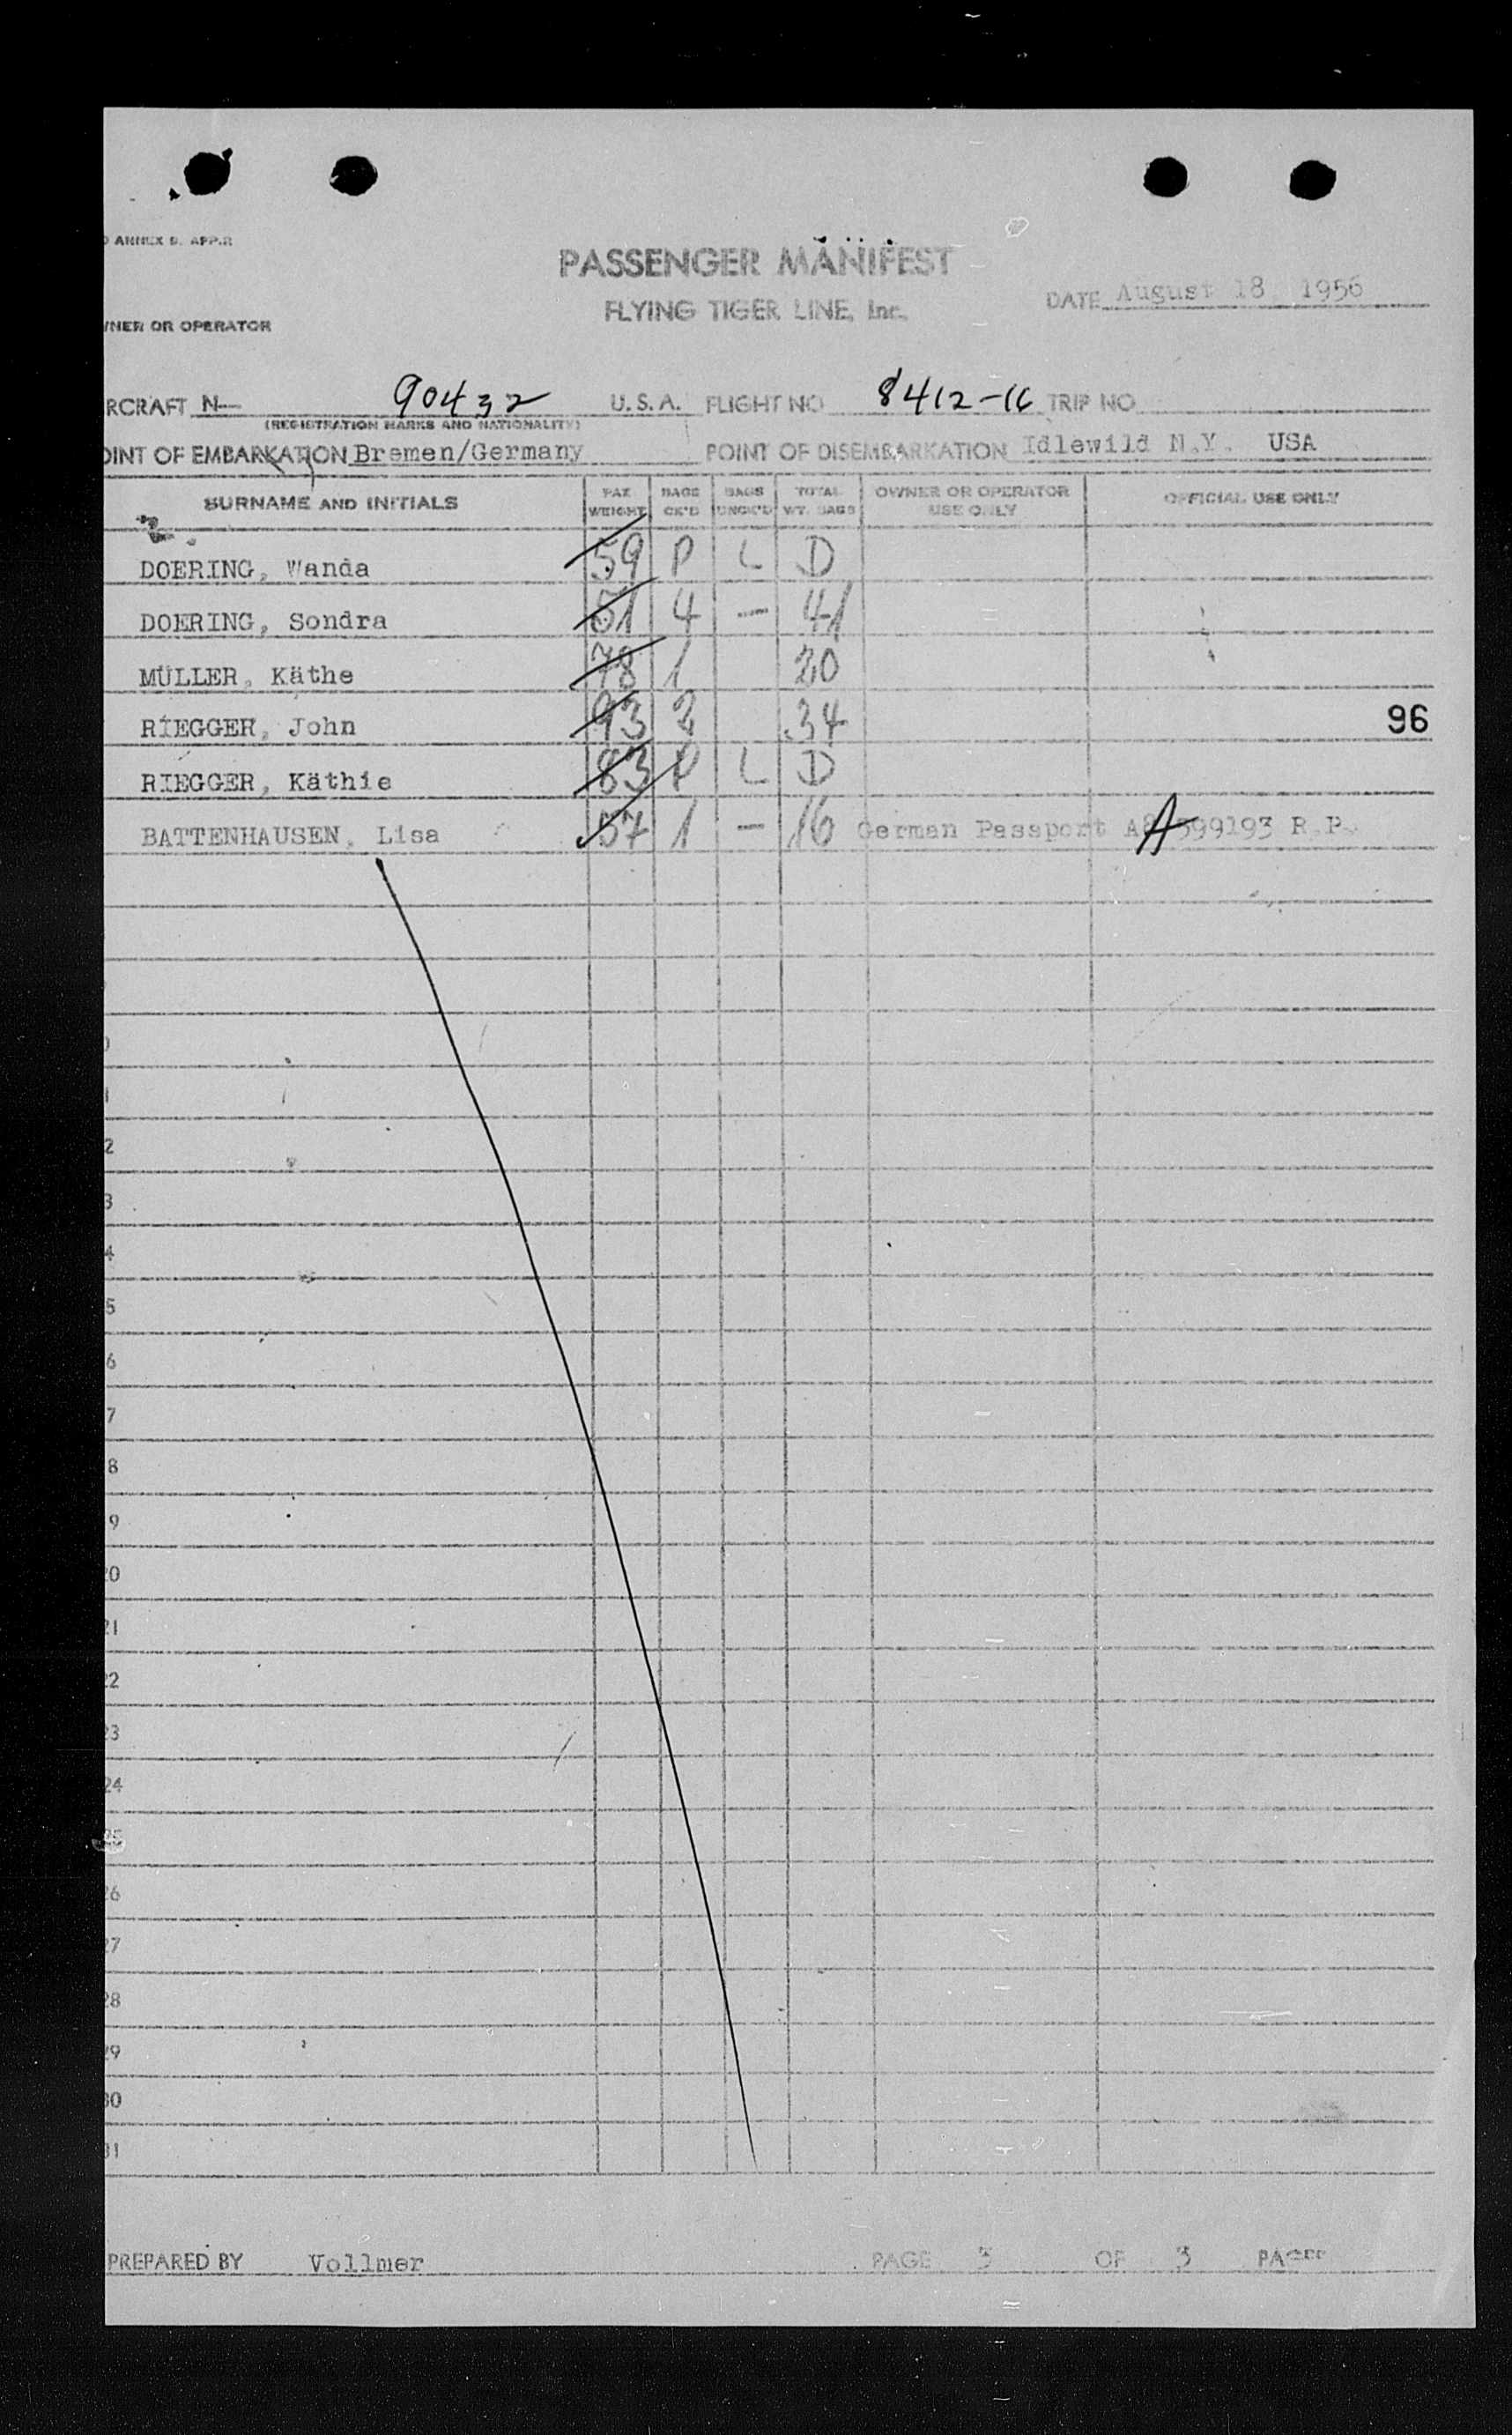 ANNEX 9. APP.2
PASSENGER MANIFEST
FLYING TIGER LINE, Inc.
DATE August 18 1956
NER OR OPERATOR
RCRAFT N— 90432 U.S.A. FLIGHT NO 8412-16 TRIP NO
(REGISTRATION MARKS AND NATIONALITY)
OINT OF EMBARKATION Bremen/Germany POINT OF DISEMBARKATION Idlewild N.Y. USA
SURNAME AND INITIALS PAX WEIGHT BAGS CK'D BAGS UNCK'D TOTAL WT. BAGS OWNER OR OPERATOR USE ONLY OFFICIAL USE ONLY
DOERING, Wanda 59 P L D
DOERING, Sondra 51 4 — 41
MÜLLER, Käthe 78 1 20
RIEGGER, John 93 2 34 96
RIEGGER, Käthie 83 P L D
BATTENHAUSEN, Lisa 57 1 — 16 German Passport A 599193 R.P.
0
1
2
3
4
5
6
7
8
9
20
21
22
23
24
25
26
27
28
29
30
31
PREPARED BY Vollmer PAGE 3 OF 3 PAGES